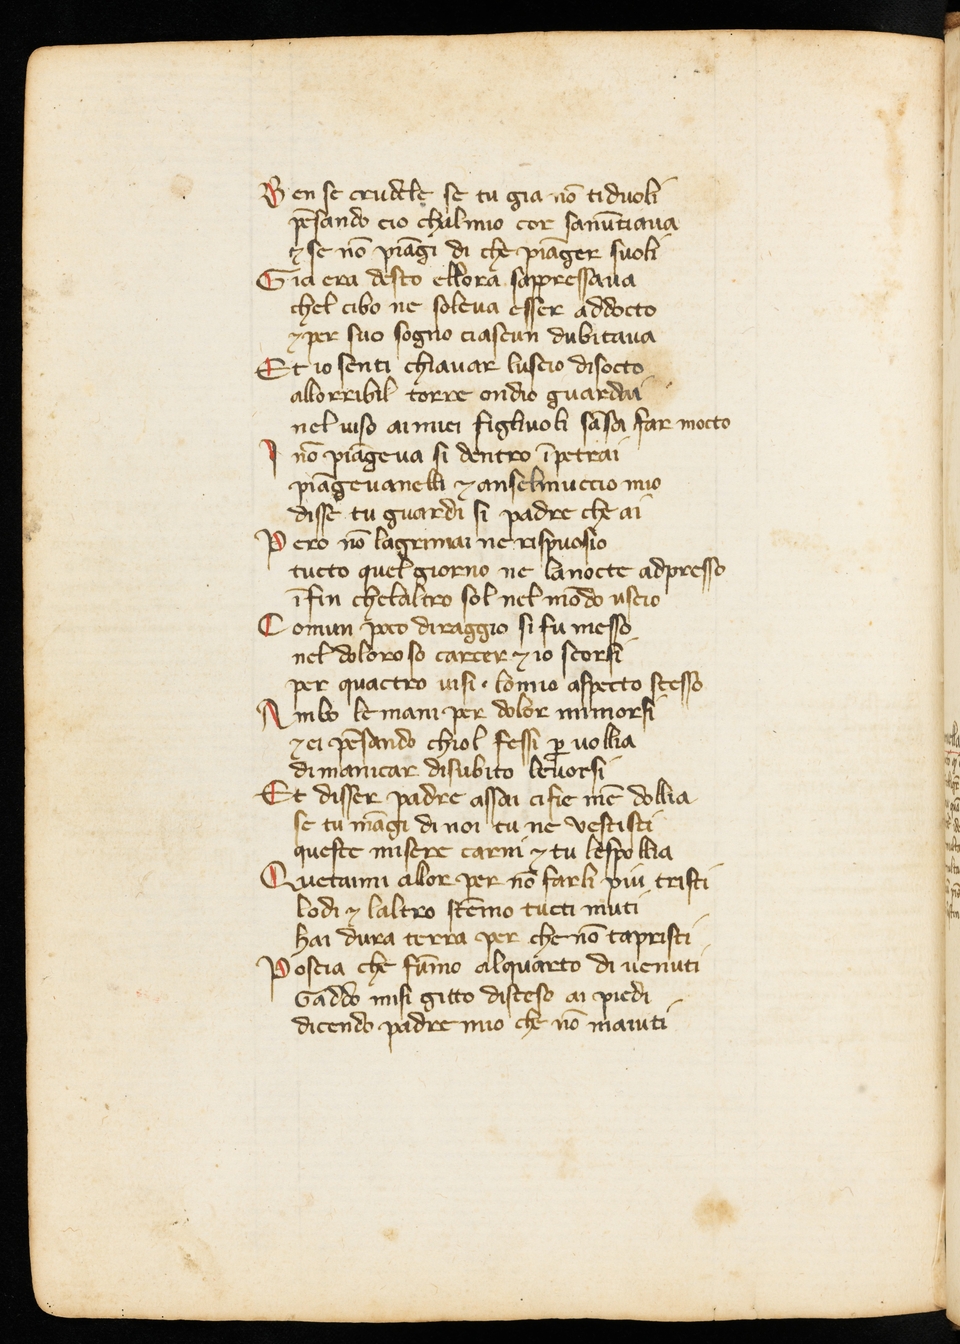 Ben se crudele se tu gia nō tiduoli
pēsando cio chalmio cor sanūtiaua
⁊ se nō piāgi di che piāger suoli
Gia era desto ellora sappressaua
chel cibo ne soleua esser addocto
⁊ per suo sogno ciascun dubitaua
Et io senti chiauar luscio disocto
allorribil torre ondio guardai
nel uiso aimiei figliuoli sāça far mocto
I nō piāgeua si dentro īpetrai
piāgeuanelli ⁊ anselmuccio mio
disse tu guardi si padre che ai
Pero nō lagrimai ne rispuosio
tucto quel giorno ne lanocte adpresso
īfin chelaltro sol nel mōdo uscio
Comun poco diraggio si fu messo
nel doloroso carcer ⁊ io scorsi
per quactro uisi · lomio aspecto stesso
Ambo le mani per dolor mimorsi
⁊ ei pēsando chiol fessi ꝑ uollia
dimanicar disubito leuorsi
Et disser padre assai cifie mē dollia
se tu māgi di noi tu ne vestisti
queste misere carni ⁊ tu lespollia
Quetaimi allor per nō farli piu tristi
lodi ⁊ laltro stēmo tucti muti
hai dura terra per che nō tapristi
Poscia che fūmo alquarto di uenuti
Gaddo misi gitto disteso ai piedi
dicendo padre mio che nō maiuti